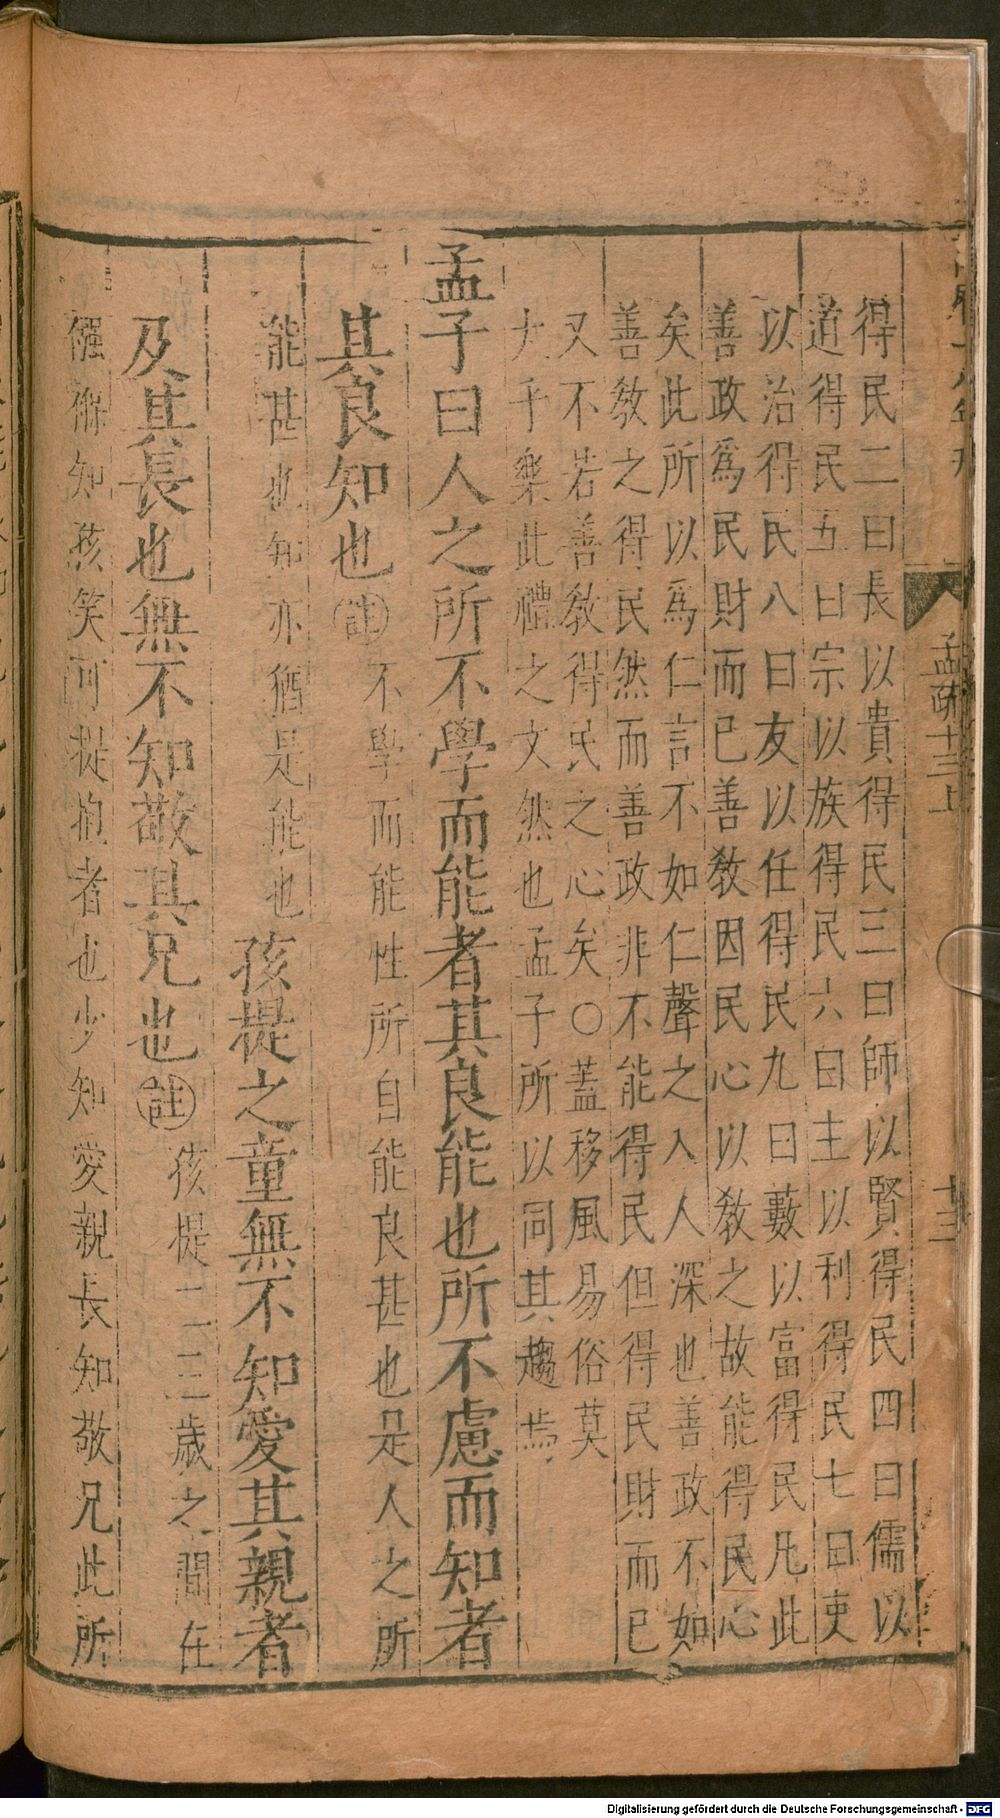 孟疏十三上
十三
得民二曰長以貴得民三曰師以賢得民四曰儒以
道得民五曰宗以族得民六曰主以利得民七曰吏
以治得民八曰友以任得民九曰藪以富得民凡此
善政爲民財而已善敎因民心以敎之故能得民心
矣此所以爲仁言不如仁聲之入人深也善政不如
善敎之得民然而善政非不能得民但得民財而已
又不若善敎得民之心矣○蓋移風易俗莫
大乎樂此禮之文然也孟子所以同其趨焉
孟子曰人之所不學而能者其良能也所不慮而知者
其良知也註不學而能性所自能良甚也是人之所
能甚也知亦猶是能也孩提之童無不知愛其親者
及其長也無不知敬其兄也註孩提二三歲之間在
襁褓知孩笑可提抱者也少知愛親長知敬兄此所
Digitalisierung gefördert durch die Deutsche Forschungsgemeinschaft - DFG